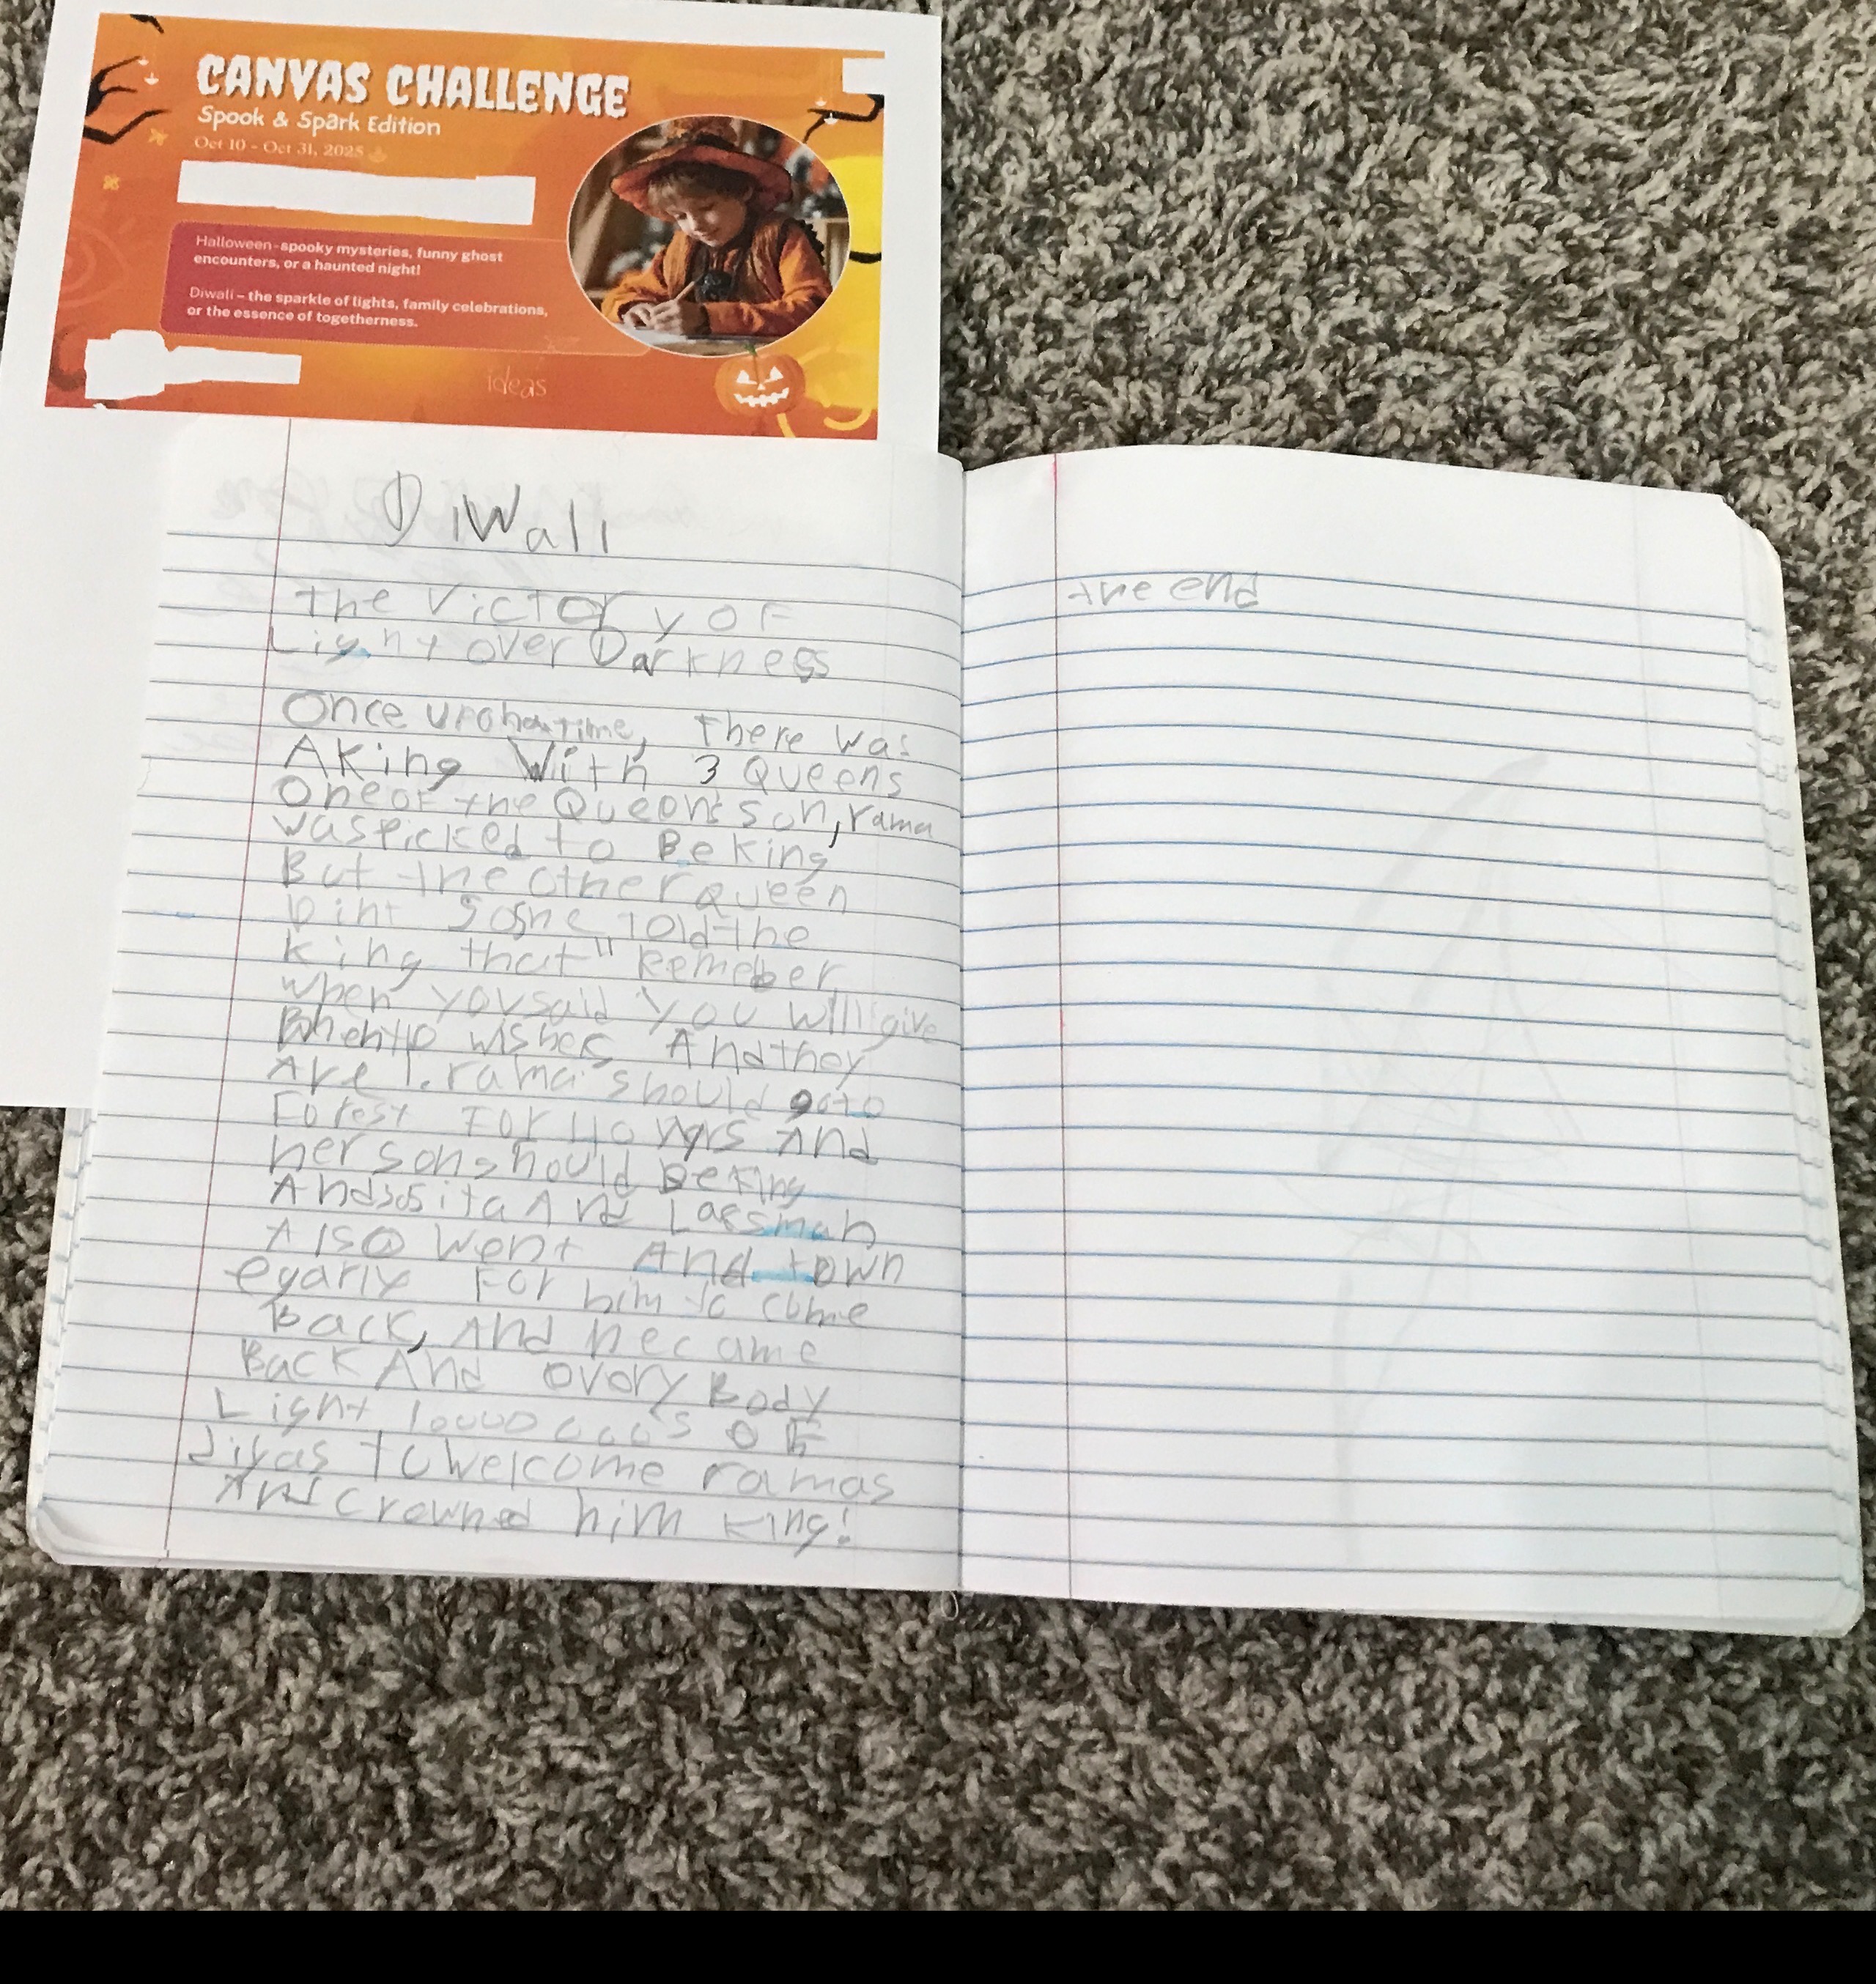 CANVAS CHALLENGE
Spook & Spark Edition
Oct 10 - Oct 31, 2025
Halloween - spooky mysteries, funny ghost
encounters, or a haunted night!
Diwali – the sparkle of lights, family celebrations,
or the essence of togetherness.
ideas
DiWali
The Victory OF
Light over Darkness
Once upon a time, There was
A King With 3 Queens
One of the Queen's son, rama
was picked to Be king
But the other queen
Dint so she Told the
king that " Remeber
when you said you will give
wishes And they
Are 1. rama should go to
Forest For 40 And
her son should Be King
And so sita And Laesman
Also went And town
egarly For him to come
Back, And he came
Back And every Body
Light 10000 000's OF
diyas To welcome ramas
And crowned him King!
the end